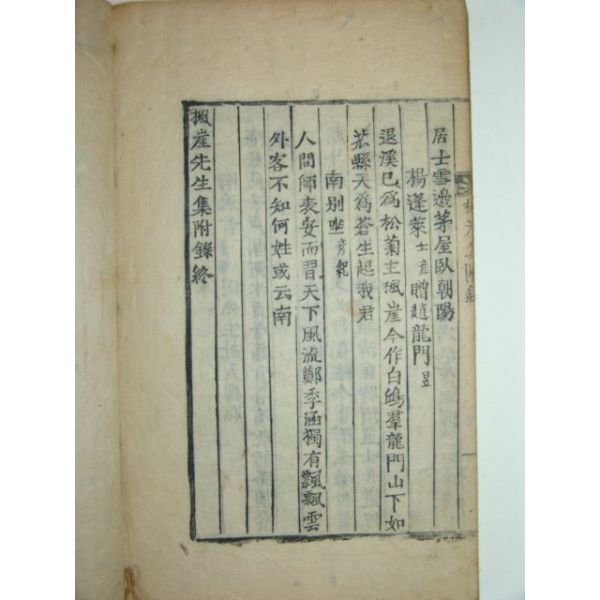 居士雪邊茅屋臥朝陽
楊蓬萊士彦贈趙龍門昱
退溪已爲松菊主楓崖今作白鷗羣龍門山下如
天爲蒼生起我君
南別坐彦紀
人間師表安而習天下風流鄭季涵獨有飄飄雲
外客不知何姓或云南
楓崖先生集附錄終